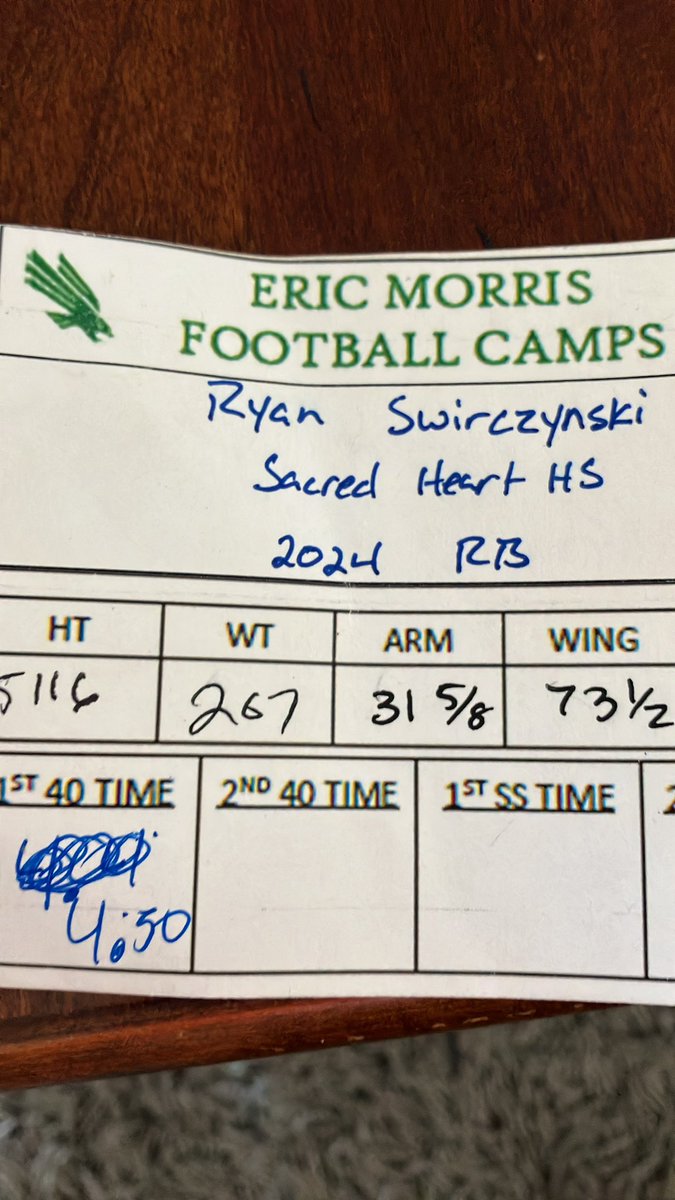 ERIC MORRIS
FOOTBALL CAMPS
Ryan Swirczynski
Sacred Heart HS
2024 RB
HT WT ARM WING
5116 207 31 5/8 73 1/2
1ST 40 TIME 2ND 40 TIME 1ST SS TIME 2
4.50